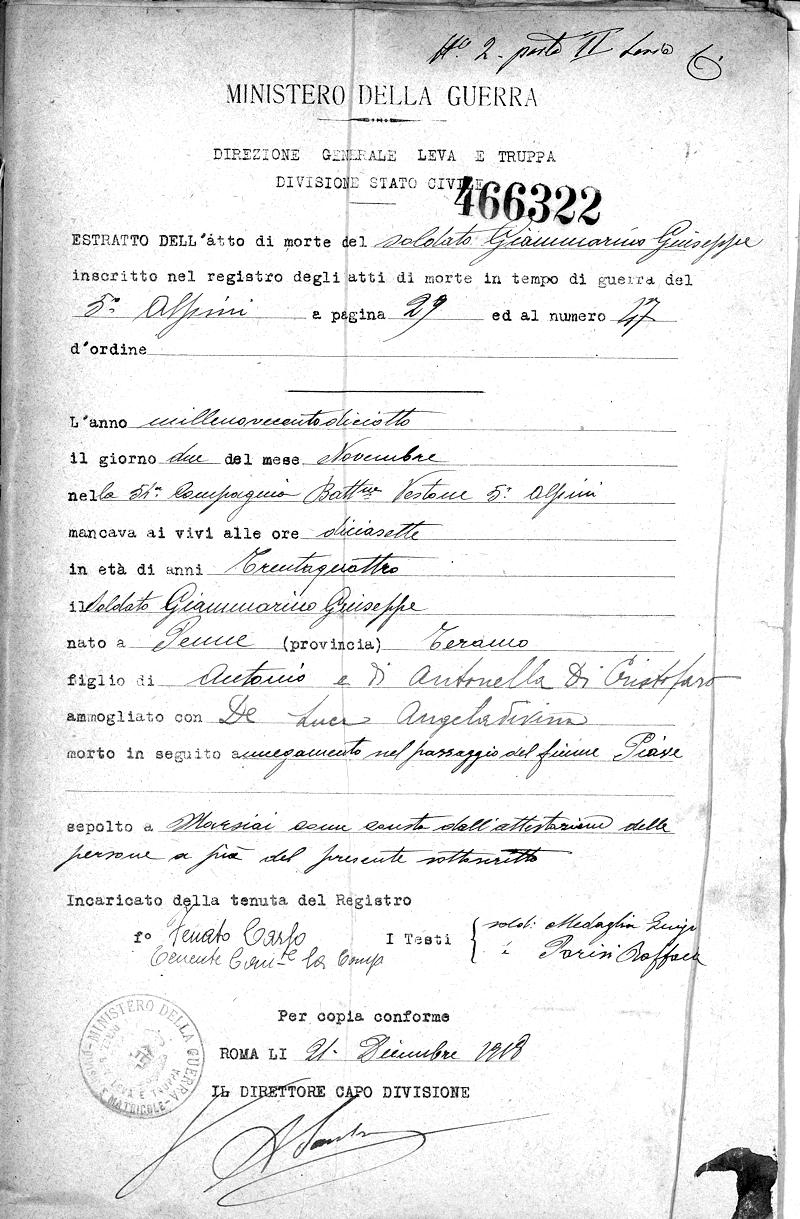 N.° 2 - parte II serie C
MINISTERO DELLA GUERRA
DIREZIONE GENERALE LEVA E TRUPPA
DIVISIONE STATO CIVILE
466322
ESTRATTO DELL'atto di morte del soldato Giammarino Giuseppe
inscritto nel registro degli atti di morte in tempo di guerra del
5° Alpini a pagina 29 ed al numero 47
d'ordine
L'anno millenovecentodiciotto
il giorno due del mese Novembre
nella 54ª Compagnia Battne Vestone 5° Alpini
mancava ai vivi alle ore diciasette
in età di anni Trentaquattro
il soldato Giammarino Giuseppe
nato a Penne (provincia) Teramo
figlio di Antonio e di Antonella Di Cristofaro
ammogliato con De Luca Angeladivina
morto in seguito annegamento nel passaggio del fiume Piave
sepolto a Marziai come consta dall'attestazione delle
persone a piè del presente sottoscritte
Incaricato della tenuta del Registro
f° Carlo
Tenente Com-te la Comp
I Testi { sold: Medaglia Luigi
Parisi Raffaele
Per copia conforme
ROMA LI 21 - Dicembre 1918
IL DIRETTORE CAPO DIVISIONE
MINISTERO DELLA GUERRA
LEVA E TRUPPA
MATRICOLE